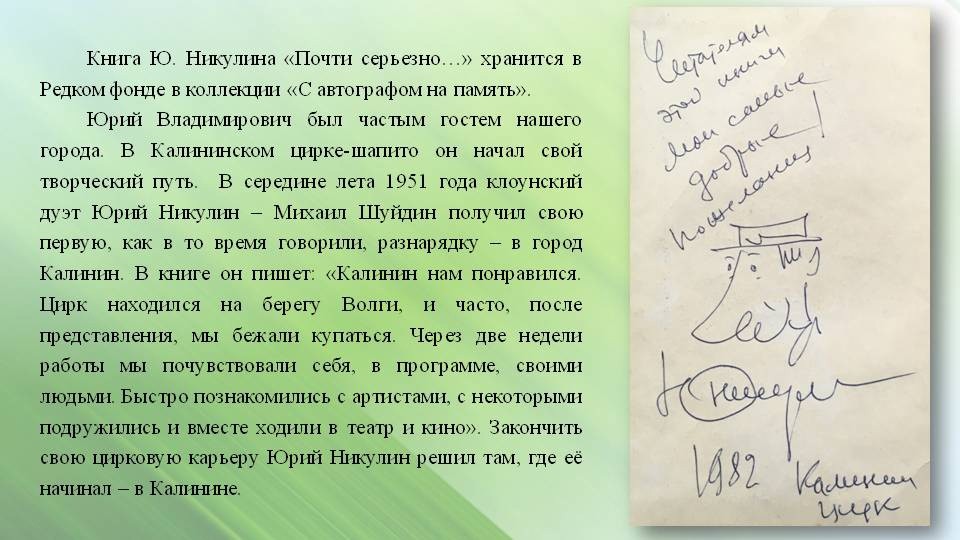 Книга Ю. Никулина «Почти серьезно…» хранится в
Редком фонде в коллекции «С автографом на память».
Юрий Владимирович был частым гостем нашего
города. В Калининском цирке-шапито он начал свой
творческий путь. В середине лета 1951 года клоунский
дуэт Юрий Никулин – Михаил Шуйдин получил свою
первую, как в то время говорили, разнарядку – в город
Калинин. В книге он пишет: «Калинин нам понравился.
Цирк находился на берегу Волги, и часто, после
представления, мы бежали купаться. Через две недели
работы мы почувствовали себя, в программе, своими
людьми. Быстро познакомились с артистами, с некоторыми
подружились и вместе ходили в театр и кино». Закончить
свою цирковую карьеру Юрий Никулин решил там, где её
начинал – в Калинине.
Читателям
этой книги
мои самые
добрые
пожелания!
Ю Никулин
1982 Калинин
цирк